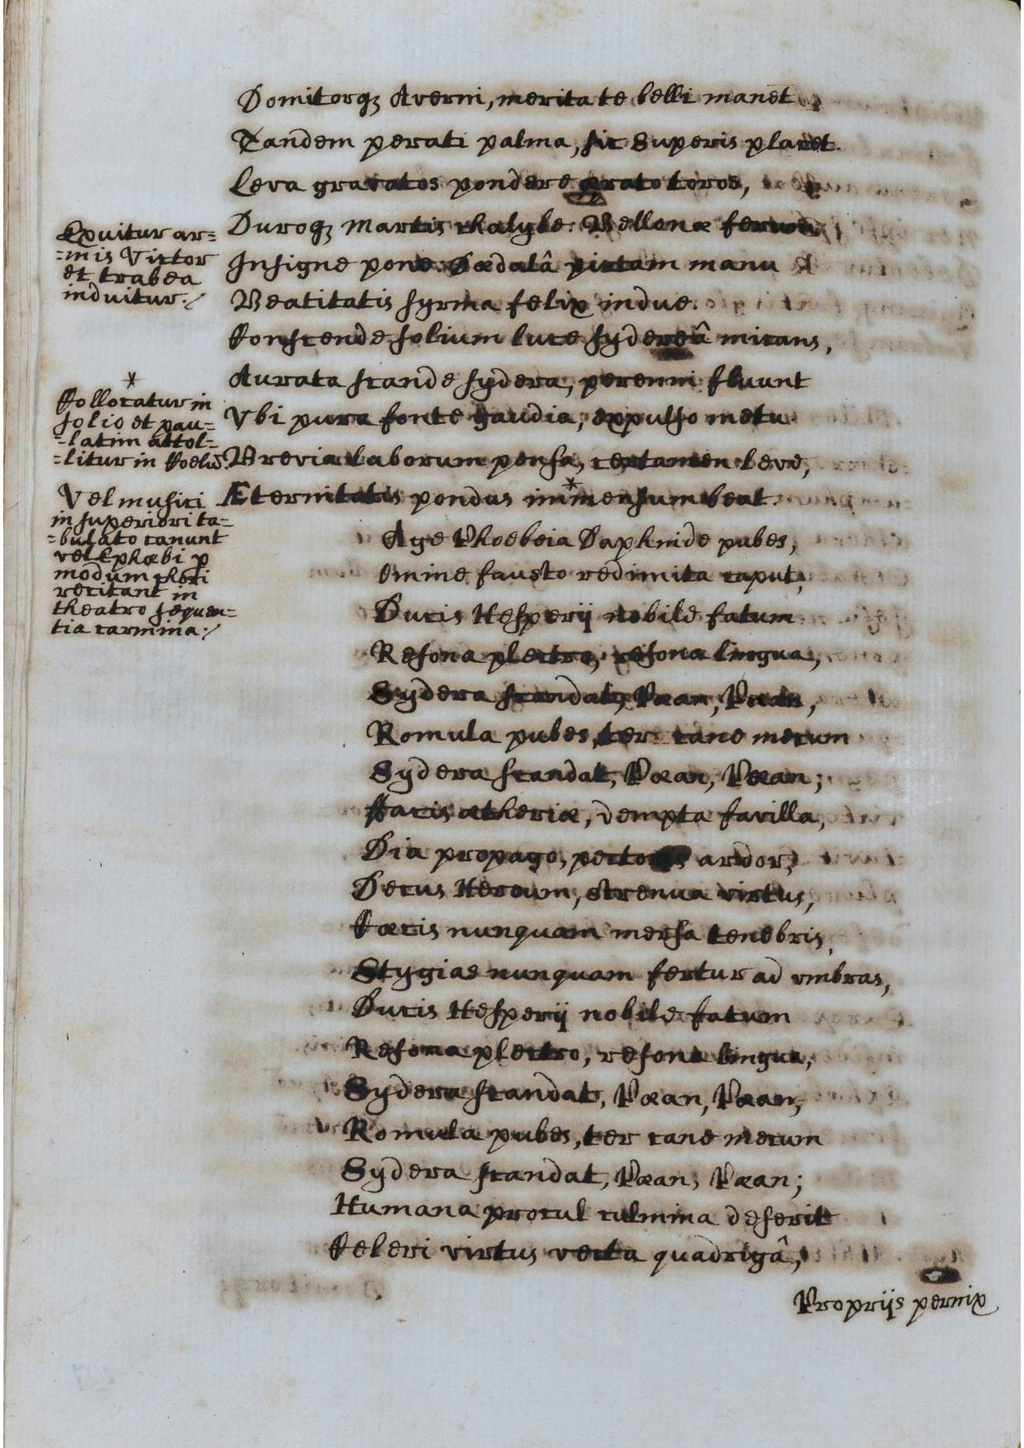 Domitorqꝫ Averni, merita te belli manet
Tandem peracti palma, sic Superis placet.
Leva gravatos pondere grato toros,
Duroqꝫ Martis chalybe. Bellonæ ferum
Insigne pone. Dædalâ pictam manu
Beatitatis syrma felix indue.
Conscende solium luce sydereâ micans,
Aurata scande sydera, perenni fluunt
Vbi pura fonte gaudia, expulso metu
Brevia laborum pensa, certamen leve,
Æternitatis pondus immensum beat.
Age Phoebeia Daphnide pubes,
Omine fausto redimita caput,
Ducis Hesperij nobile fatum
Resona plectro, resona lingua,
Sydera scandat, Pæan, Pæan,
Romula pubes, ter cane mecum
Sydera scandat, Pæan, Pæan;
Facis ætheriæ, dempta favilla,
Dia propago, pectoris ardor,
Decus Heroum, strenua virtus,
Cæcis nunquam mersa tenebris,
Stygias nunquam fertur ad vmbras,
Ducis Hesperij nobile fatum
Resona plectro, resona lingua,
Sydera scandat, Pæan, Pæan,
Romula pubes, ter cane mecum
Sydera scandat, Pæan, Pæan;
Humana procul culmina deserit
Celeri virtus vecta quadrigâ,
Proprijs pernix
Exuitur ar=
=mis Victor
et trabea
induitur./
*
Collocatur in
solio et pau=
=latim attol=
=litur in Coelũ.
*
Vel musici
in superiori ta=
=bulato canunt
vel Ephœbi p
modum chori
recitant in
theatro sequen=
tia carmina:/